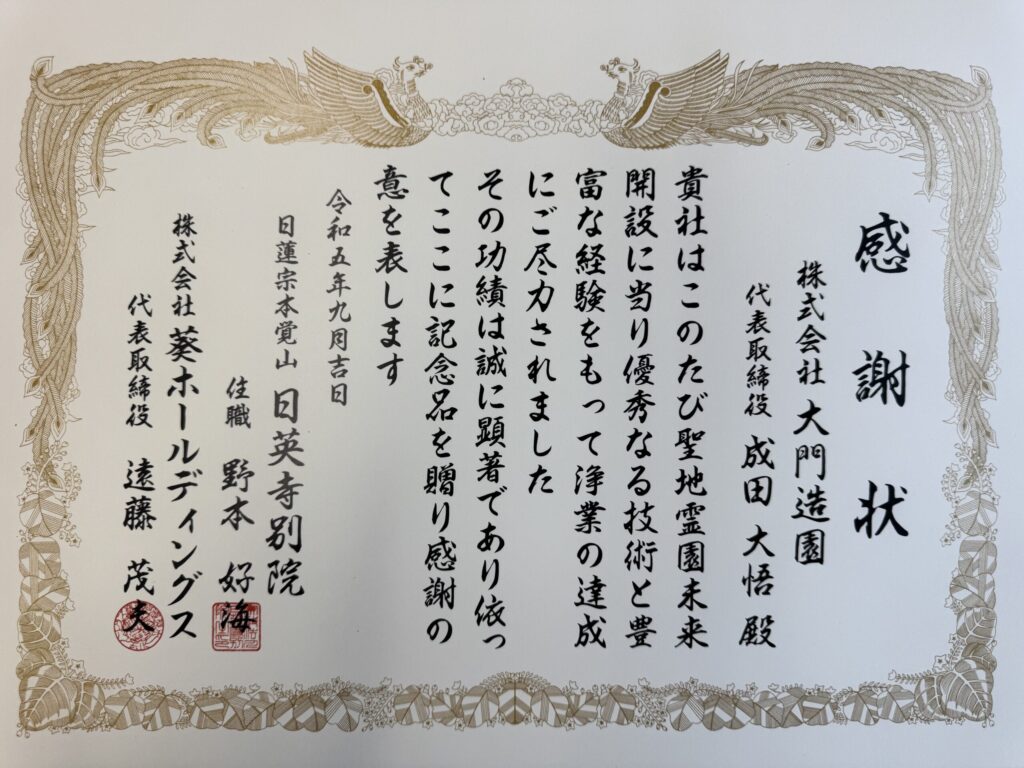 感謝状
株式会社 大門造園
代表取締役 成田 大悟 殿
貴社はこのたび聖地霊園未来
開設に当り優秀なる技術と豊
富な経験をもって浄業の達成
にご尽力されました
その功績は誠に顕著であり依っ
てここに記念品を贈り感謝の
意を表します
令和五年九月吉日
日蓮宗本覚山 日英寺別院
住職 野本 好海
株式会社 葵ホールディングス
代表取締役 遠藤 茂夫